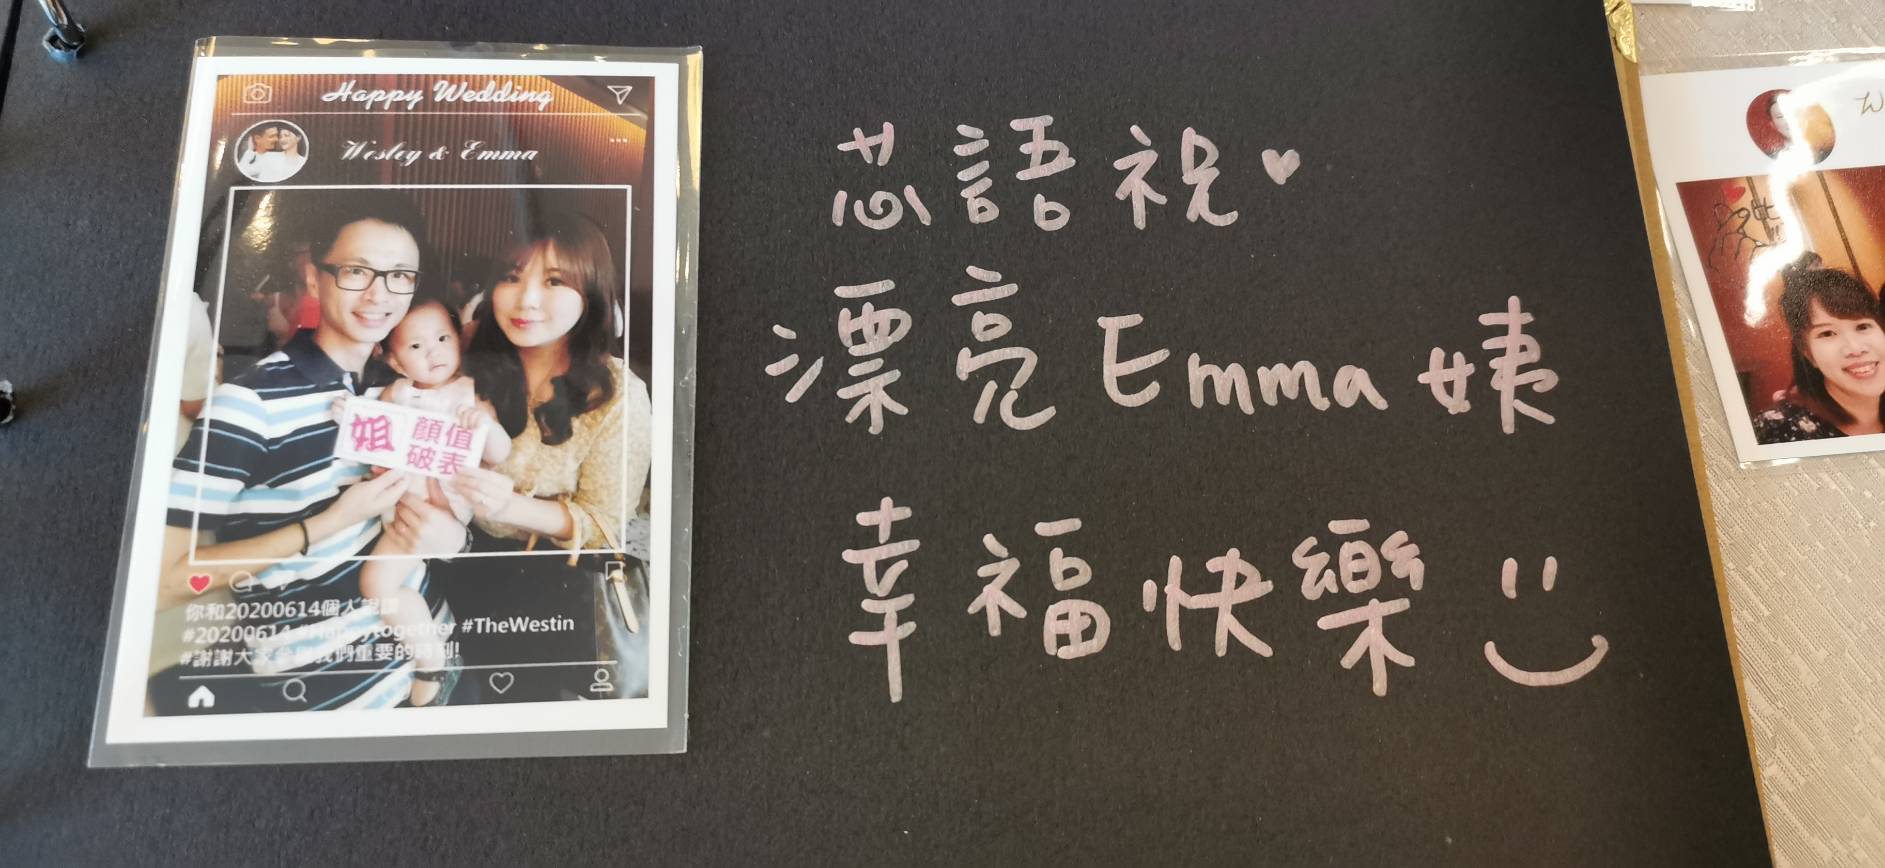 Happy Wedding
Wesley & Emma
姐 顏值
破表
你和20200614個人說讚
#20200614 #Happytogether #TheWestin
#謝謝大家參與我們重要的時刻!
芯語祝♥
漂亮Emma姨
幸福快樂
W